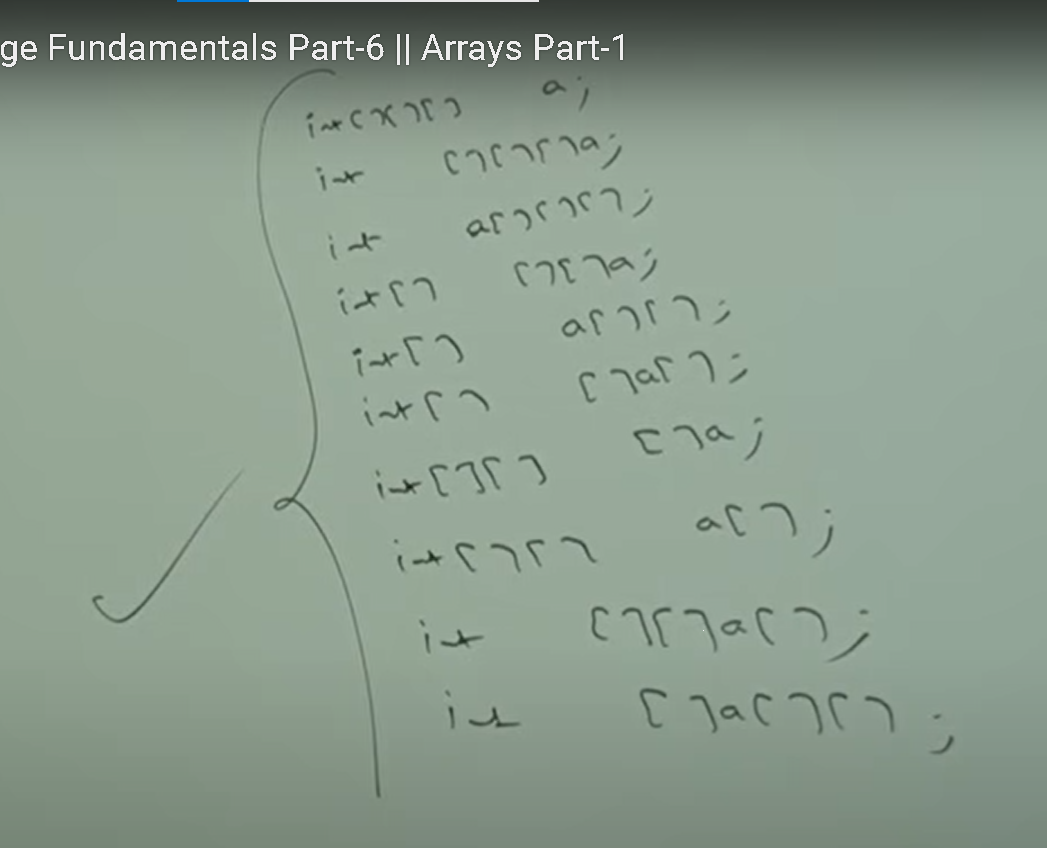 ge Fundamentals Part-6 || Arrays Part-1
int[][][] a;
int [][][]a;
int a[][][];
int[] [][]a;
int[] a[][];
int[] []a[];
int[][] []a;
int[][] a[];
int [][]a[];
int []a[][];